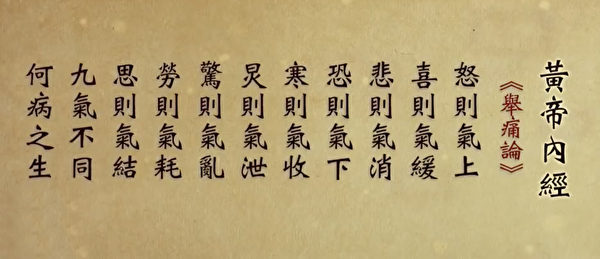 黃帝內經
《舉痛論》
怒則氣上
喜則氣緩
悲則氣消
恐則氣下
寒則氣收
炅則氣泄
驚則氣亂
勞則氣耗
思則氣結
九氣不同
何病之生